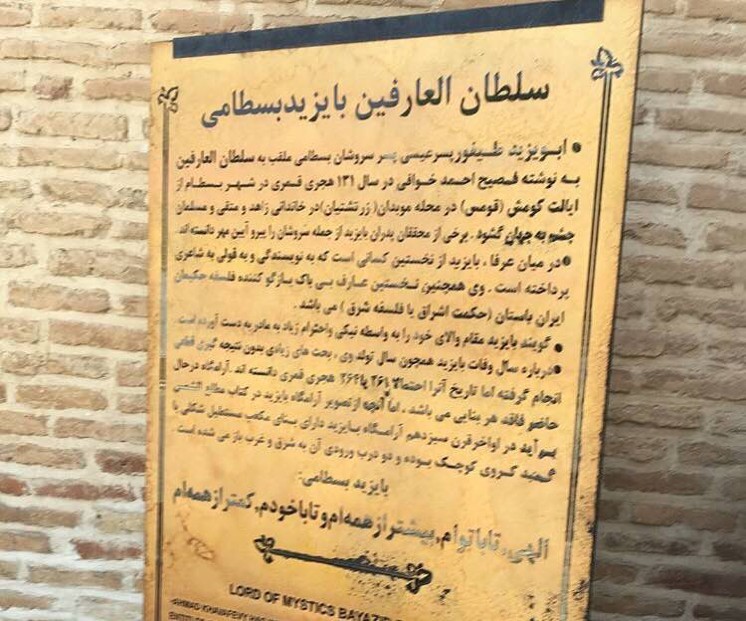 سلطان العارفین بایزید بسطامی
• ابویزید طیفور پسر عیسی پسر سروشان بسطامی ملقب به سلطان العارفین
به نوشته فصیح احمد خوافی در سال ۱۳۱ هجری قمری در شهر بسطام از
ایالت کومش (قومس) در محله موبدان( زرتشتیان)در خاندانی زاهد و متقی و مسلمان
چشم به جهان گشود . برخی از محققان پدران بایزید از جمله سروشان را پیرو آیین مهر دانسته اند.
•در میان عرفا ، بایزید از نخستین کسانی است که به نویسندگی و به قولی به شاعری
پرداخته است . وی همچنین نخستین عارف بی باک بازگو کننده فلسفه حکیمان
ایران باستان (حکمت اشراق یا فلسفه شرق ) می باشد .
• گویند بایزید مقام والای خود را به واسطه نیکی واحترام زیاد به مادر به دست آورده است.
•درباره سال وفات بایزید همچون سال تولد وی ، بحث های زیادی بدون نتیجه گیری قطعی
انجام گرفته اما تاریخ آنرا احتمالا ۲۶۱ یا ۲۶۴ هجری قمری دانسته اند .آرامگاه درحال
حاضر فاقد هر بنایی می باشد . اما آنچه از تصویر آرامگاه بایزید در کتاب مطلع الشمس
بر آید در اواخر قرن سیزدهم آرامگاه بایزید دارای بنای مکعب مستطیل شکلی با
گنبد کروی کوچک بوده و دو درب ورودی آن به شرق و غرب باز می شده است
بایزید بسطامی:
الهی، تا با توام, بیشتر از همه ام و تا با خودم, کمتر از همه ام
LORD OF MYSTICS BAYAZID
AHMAD KHAVAFEVY HAS